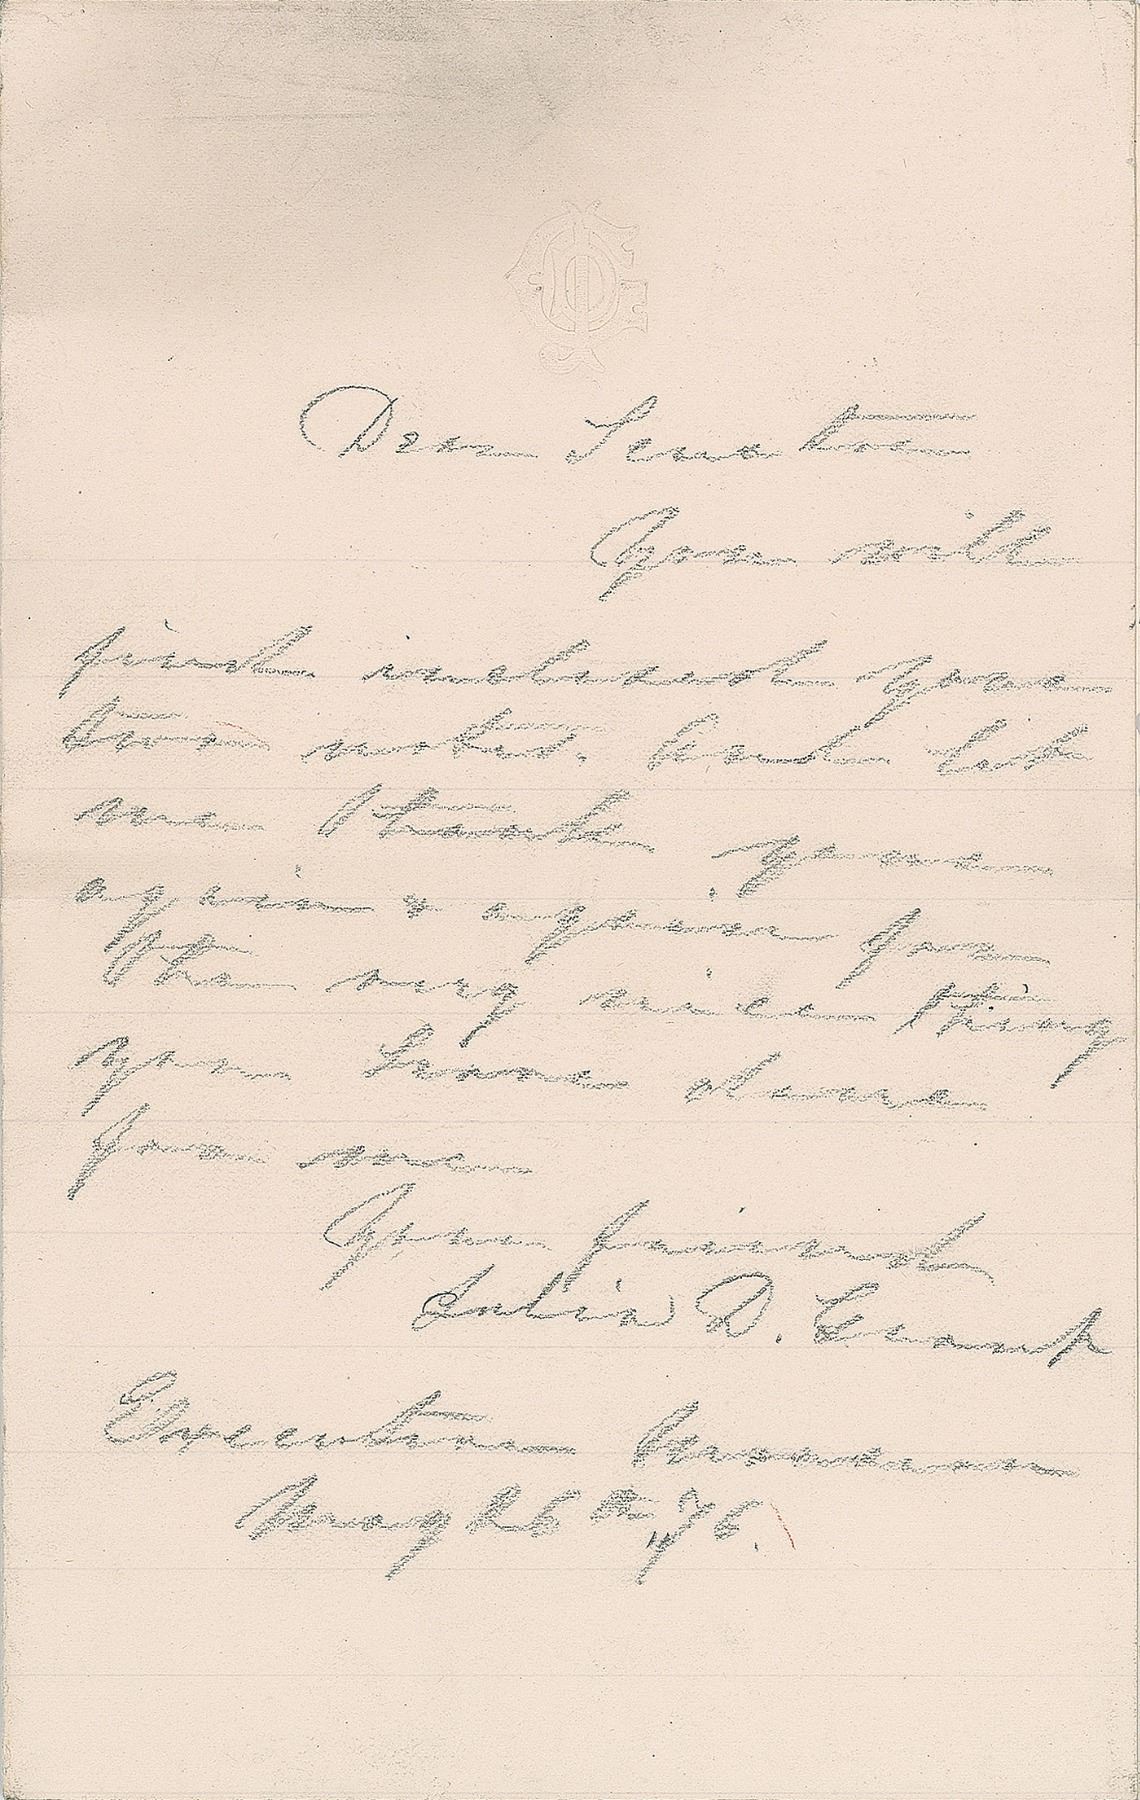 Dear Senator
Your will
find inclosed your
two notes. And let
me thank your
again & again for
the very nice thing
you have done
for me
Your friend
Julia D. Grant
Executive Mansion
May 26th 76.